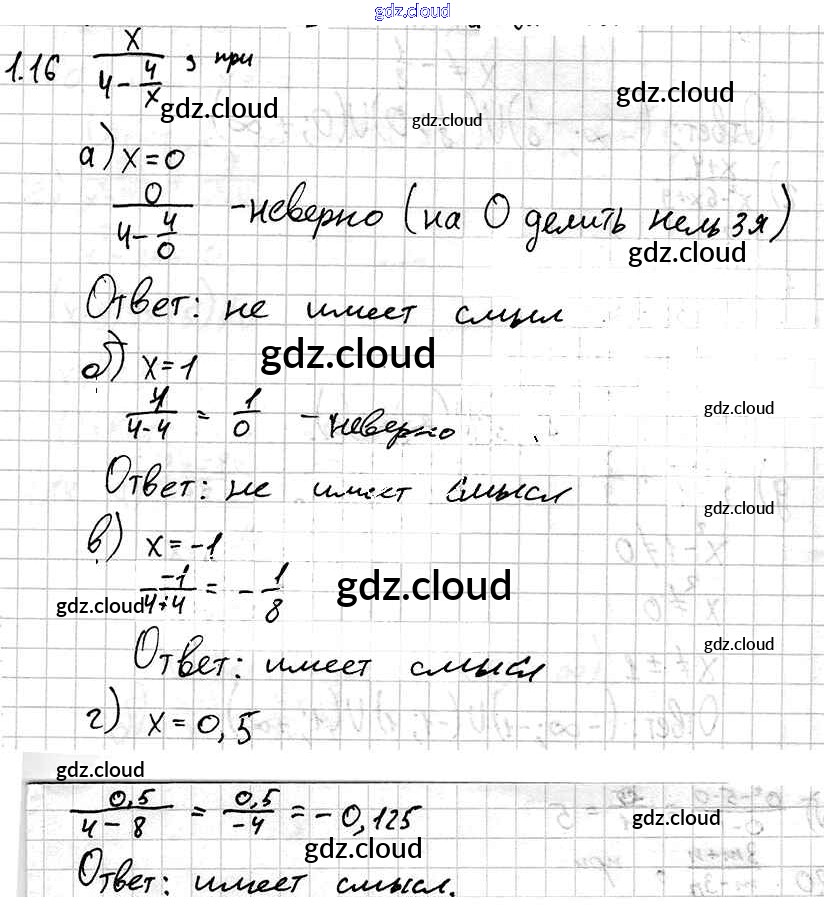 gdz.cloud
1.16 x/(4 - 4/x), при
gdz.cloud
gdz.cloud
gdz.cloud
а) x = 0
0/(4 - 4/0) - неверно (на 0 делить нельзя)
gdz.cloud
Ответ: не имеет смыл
gdz.cloud
б) x = 1
gdz.cloud
1/(4-4) = 1/0 - неверно
Ответ: не имеет смысл
gdz.cloud
в) x = -1
gdz.cloud
-1/(4+4) = -1/8
gdz.cloud
gdz.cloud
Ответ: имеет смысл
г) x = 0,5
gdz.cloud
0,5/(4 - 8) = 0,5/-4 = -0,125
gdz.cloud
gdz.cloud
Ответ: имеет смысл.